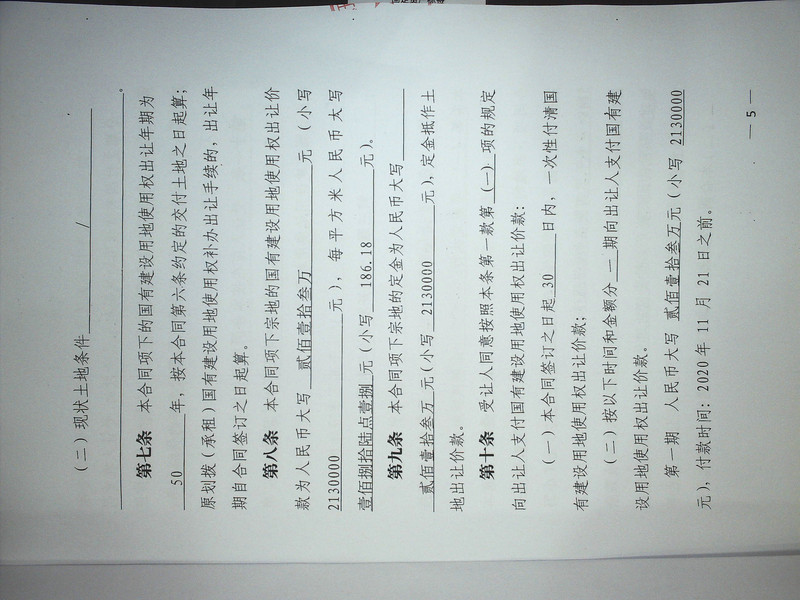 （二）现状土地条件 /
。
第七条 本合同项下的国有建设用地使用权出让年期为
50 年，按本合同第六条约定的交付土地之日起算；
原划拨（承租）国有建设用地使用权补办出让手续的，出让年
期自合同签订之日起算。
第八条 本合同项下宗地的国有建设用地使用权出让价
款为人民币大写 贰佰壹拾叁万 元（小写
2130000 元），每平方米人民币大写
壹佰捌拾陆点壹捌 元（小写 186.18 元）。
第九条 本合同项下宗地的定金为人民币大写
贰佰壹拾叁万 元（小写 2130000 元），定金抵作土
地出让价款。
第十条 受让人同意按照本条第一款第（一）项的规定
向出让人支付国有建设用地使用权出让价款：
（一）本合同签订之日起 30 日内，一次性付清国
有建设用地使用权出让价款；
（二）按以下时间和金额分 一 期向出让人支付国有建
设用地使用权出让价款。
第一期 人民币大写 贰佰壹拾叁万元（小写 2130000
元），付款时间：2020 年 11 月 21 日之前。
— 5 —